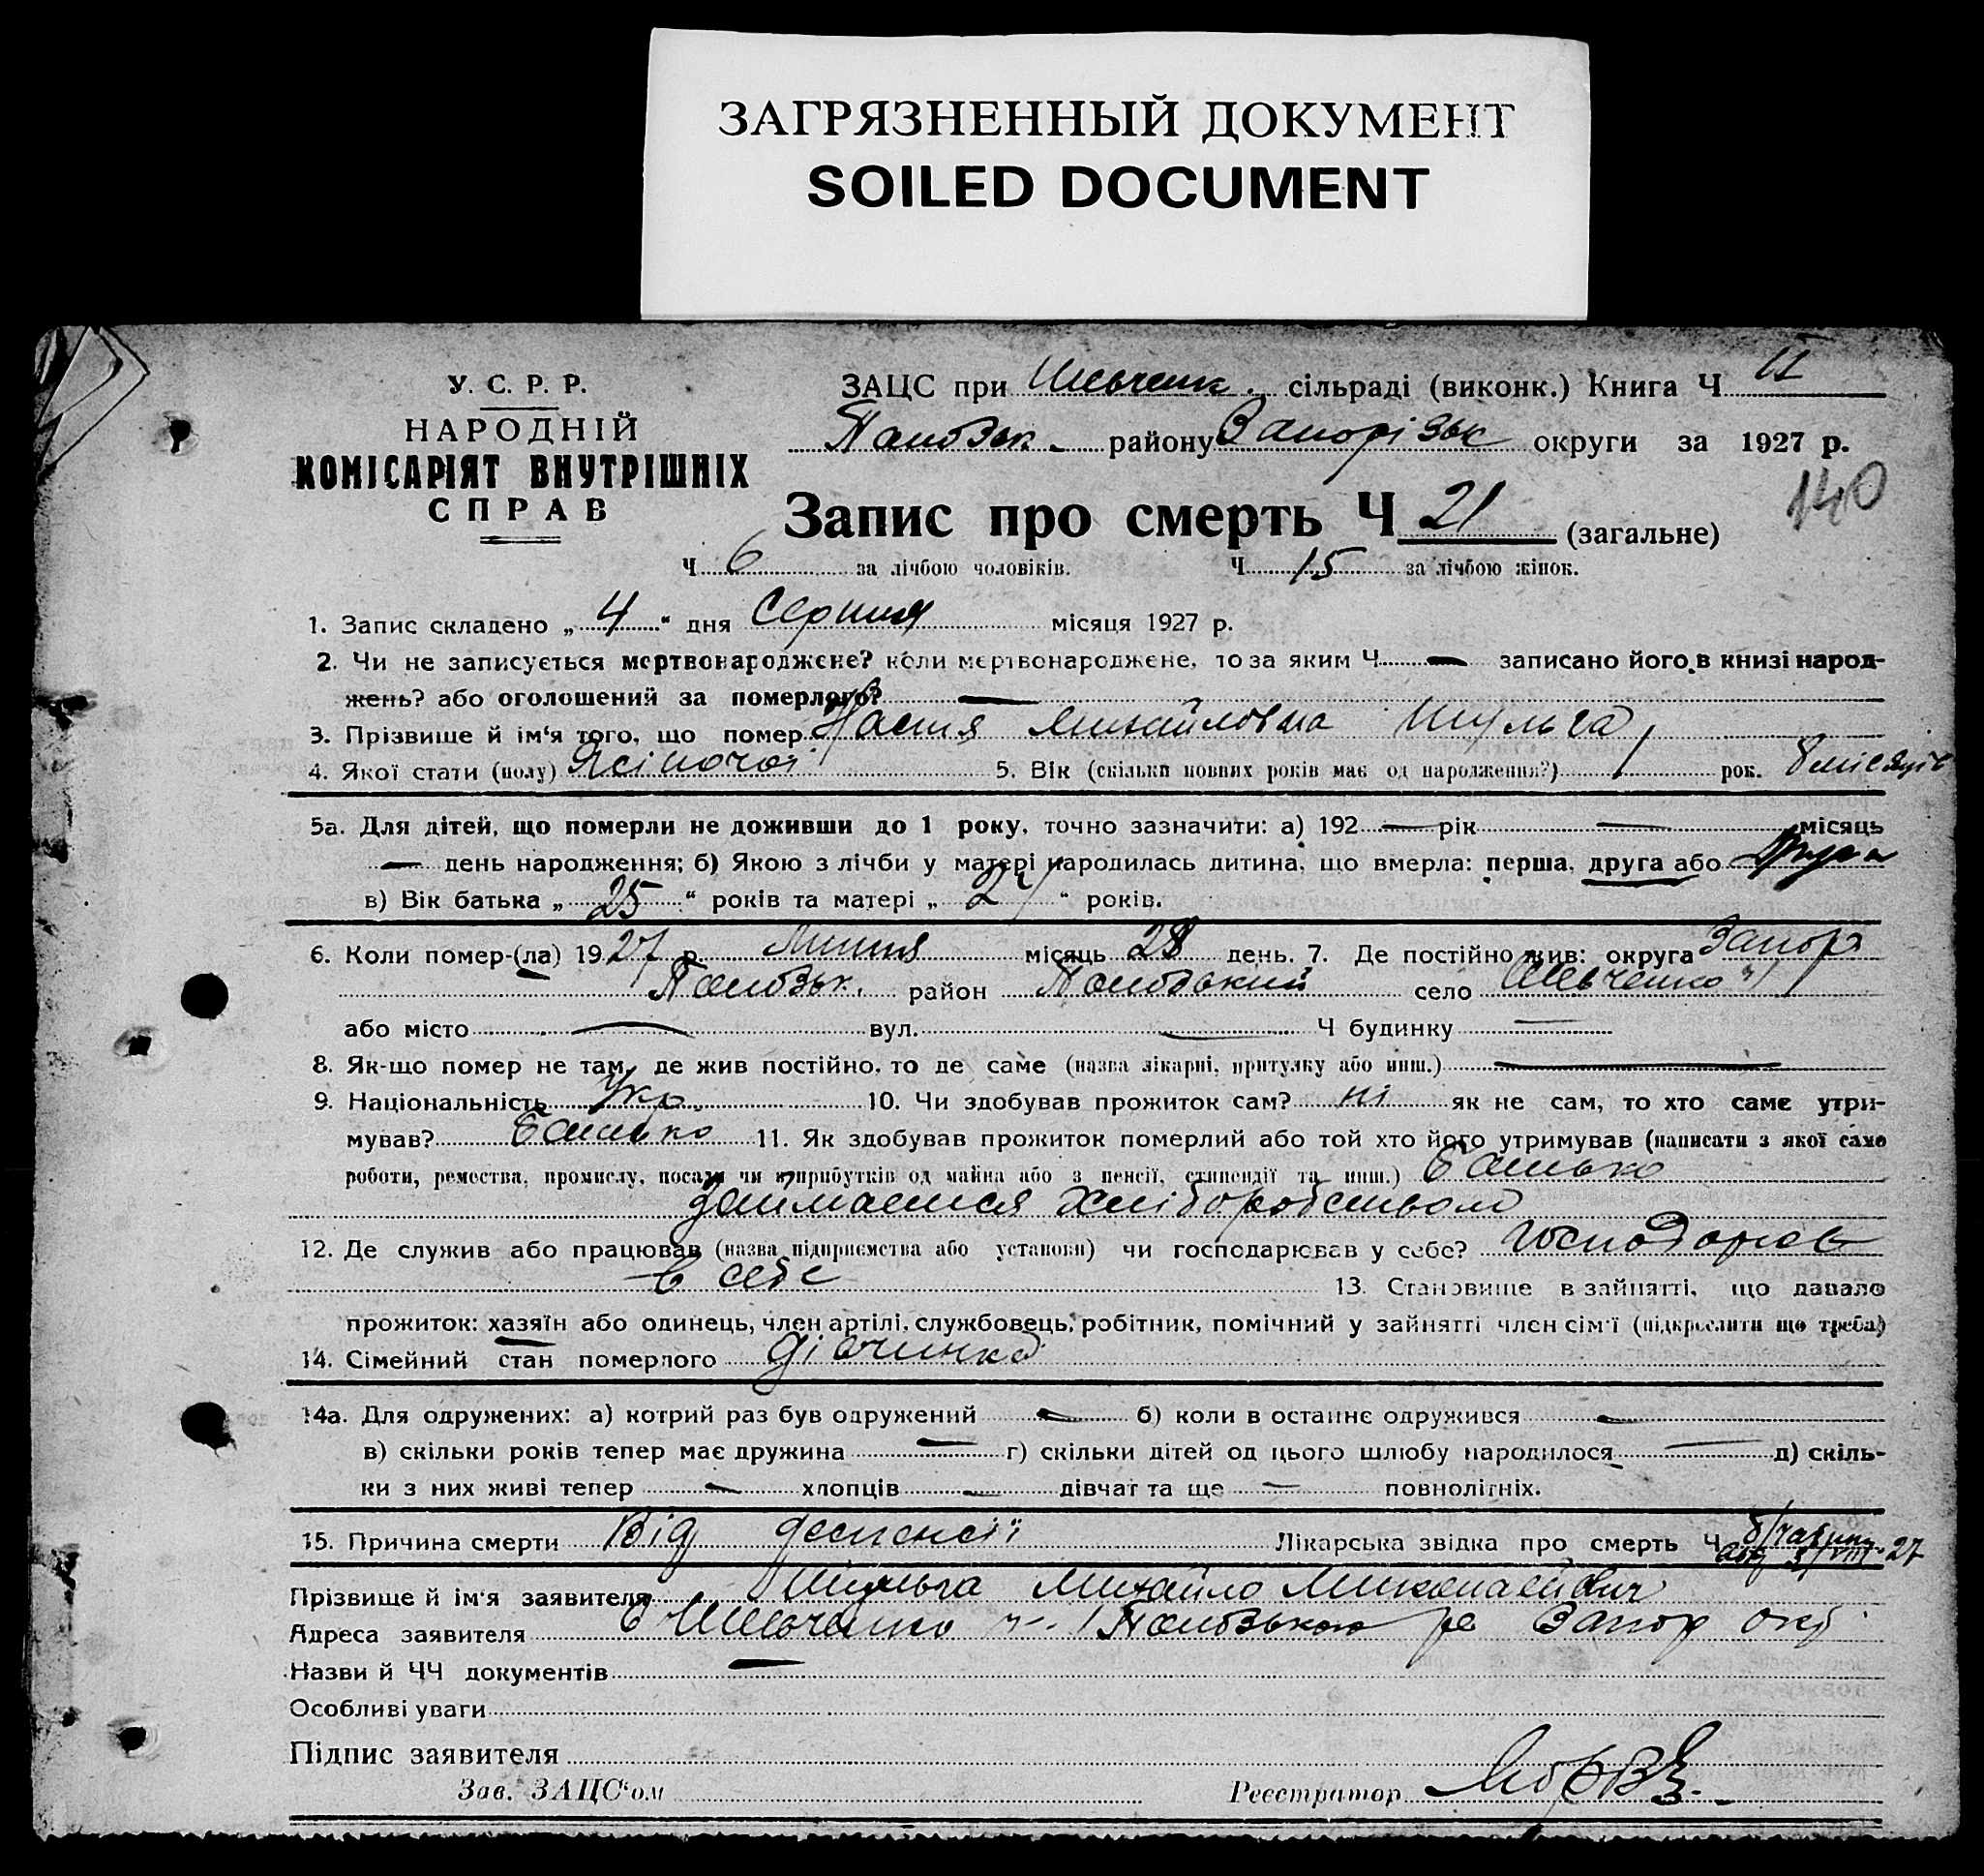 ЗАГРЯЗНЕННЫЙ ДОКУМЕНТ
SOILED DOCUMENT
У. С. Р. Р.
НАРОДНІЙ
КОМІСАРІЯТ ВНУТРІШНІХ
СПРАВ
ЗАЦС при Шевченк. сільраді (виконк.) Книга Ч II
району Запорізьк округи за 1927 р.
140
Запис про смерть Ч 21 (загальне)
Ч 6 за лічбою чоловіків. Ч 15 за лічбою жінок.
1. Запис складено „ 4 “ дня Серпня місяця 1927 р.
2. Чи не записується мертвонароджене? коли мертвонароджене, то за яким Ч — записано його в книзі народ-
жень? або оголошений за померлого? —
3. Прізвище й ім'я того, що помер Настя Михайловна Шульга
4. Якої стати (полу) Жіночої 5. Вік (скільки повних років має од народження?) 1 рок. 8 місяців
5а. Для дітей, що померли не доживши до 1 року, точно зазначити: а) 192 — рік — місяць
— день народження; б) Якою з лічби у матері народилась дитина, що вмерла: перша, друга або друга
в) Вік батька „ 25 “ років та матері „ 24 “ років.
6. Коли помер-(ла) 1927 р. Липня місяць 28 день. 7. Де постійно жив: округа Запор
район село Шевченко
або місто — вул. — Ч будинку —
8. Як-що помер не там, де жив постійно, то де саме (назва лікарні, притулку або инш.) —
9. Національність Укр. 10. Чи здобував прожиток сам? ні як не сам, то хто саме утри-
мував? Батько 11. Як здобував прожиток померлий або той хто його утримував (написати з якої само
роботи, ремества, промислу, посади чи з прибутків од майна або з пенсії, стипендії та инш.) Батько
займаєтся хліборобством
12. Де служив або працював (назва підприємства або установи) чи господарював у себе? господарює
в себе 13. Становище в зайнятті, що давало
прожиток: хазяїн або одинець, член артілі, службовець, робітник, помічний у зайнятті член сім'ї (підкреслити що треба)
14. Сімейний стан померлого дівчинка
14а. Для одружених: а) котрий раз був одружений — б) коли в останнє одружився —
в) скільки років тепер має дружина — г) скільки дітей од цього шлюбу народилося — д) скіль-
ки з них живі тепер — хлопців — дівчат та ще — повнолітніх.
15. Причина смерти Від Лікарська звідка про смерть Ч
27
Прізвище й ім'я заявителя Шульга Михайло Миколаєвич
Адреса заявителя с Шевченко Запор окр
Назви й ЧЧ документів —
Особливі уваги
Підпис заявителя
Зав. ЗАЦС'ом Реєстратор